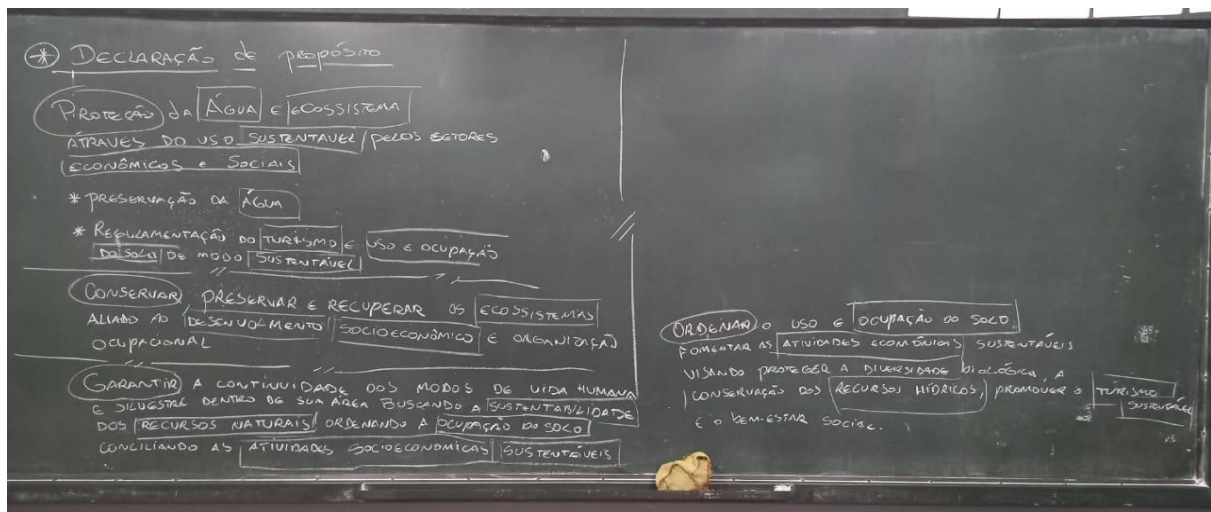 * DECLARAÇÃO de propósito
PROTEÇÃO da ÁGUA E ECOSSISTEMA
ATRAVES DO USO SUSTENTAVEL pelos SETORES
ECONÔMICOS e SOCIAIS
* PRESERVAÇÃO DA ÁGUA
* REGULAMENTAÇÃO DO TURISMO E USO E OCUPAÇÃO
DO SOLO DE MODO SUSTENTÁVEL
CONSERVAR PRESERVAR E RECUPERAR OS ECOSSISTEMAS
ALIADO AO DESENVOLMENTO SOCIOECONÔMICO E ORGANIZAÇÃO
OCUPACIONAL
GARANTIR A CONTINUIDADE DOS MODOS DE VIDA HUMANA
E SILVESTRE DENTRO DE SUA ÁREA BUSCANDO A SUSTENTABILIDADE
DOS RECURSOS NATURAIS ORDENANDO A OCUPAÇÃO DO SOLO
CONCILIANDO AS ATIVIDADES SOCIOECONOMICAS SUSTENTÁVEIS
ORDENAR O USO E OCUPAÇÃO DO SOLO
FOMENTAR AS ATIVIDADES SUSTENTÁVEIS
VISANDO PROTEGER A DIVERSIDADE biOLÓGICA, A
CONSERVAÇÃO DOS RECURSOS HÍDRICOS, PROMOVER O TURISMO
SUSTENTÁVEL
E O bEM-ESTAR SOCIAL.